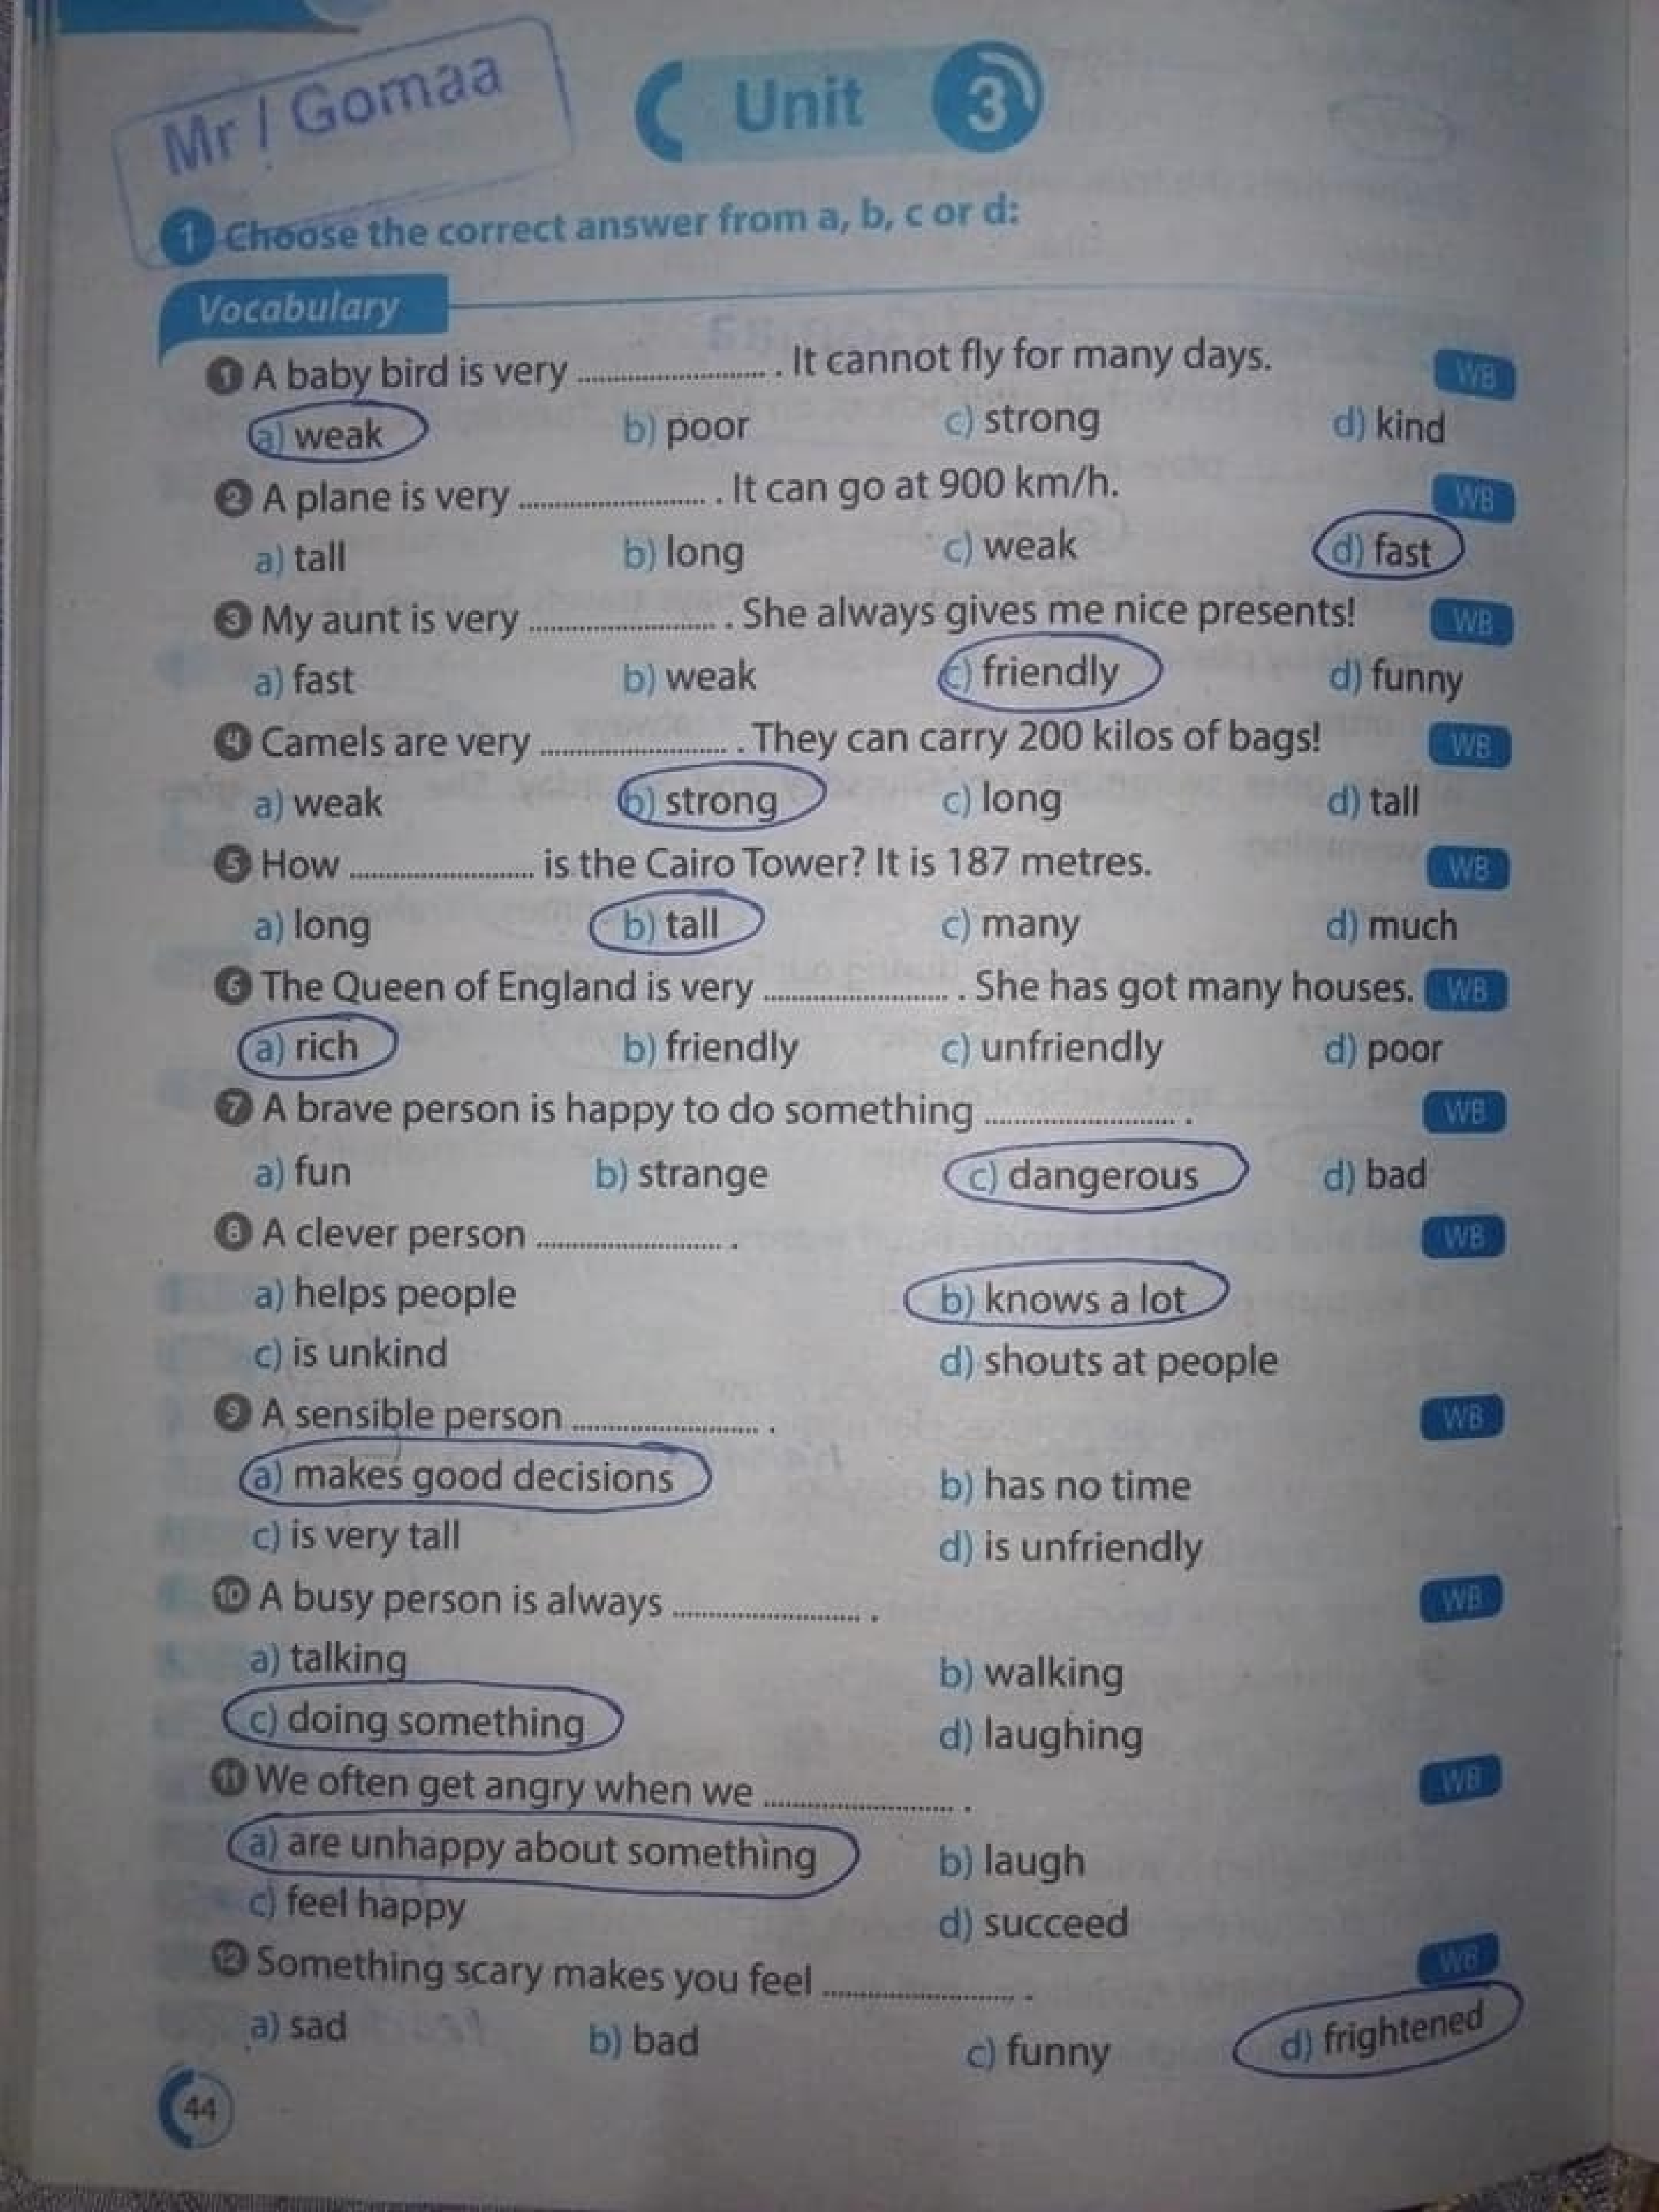 Mr / Gomaa
Unit 3
1 Choose the correct answer from a, b, c or d:
Vocabulary
1 A baby bird is very .......................... . It cannot fly for many days. WB
a) weak b) poor c) strong d) kind
2 A plane is very .......................... . It can go at 900 km/h. WB
a) tall b) long c) weak d) fast
3 My aunt is very .......................... . She always gives me nice presents! WB
a) fast b) weak c) friendly d) funny
4 Camels are very .......................... . They can carry 200 kilos of bags! WB
a) weak b) strong c) long d) tall
5 How .......................... is the Cairo Tower? It is 187 metres. WB
a) long b) tall c) many d) much
6 The Queen of England is very .......................... . She has got many houses. WB
a) rich b) friendly c) unfriendly d) poor
7 A brave person is happy to do something .......................... . WB
a) fun b) strange c) dangerous d) bad
8 A clever person .......................... . WB
a) helps people b) knows a lot
c) is unkind d) shouts at people
9 A sensible person .......................... . WB
a) makes good decisions b) has no time
c) is very tall d) is unfriendly
10 A busy person is always .......................... . WB
a) talking b) walking
c) doing something d) laughing
11 We often get angry when we .......................... . WB
a) are unhappy about something b) laugh
c) feel happy d) succeed
12 Something scary makes you feel .......................... . WB
a) sad b) bad c) funny d) frightened
44